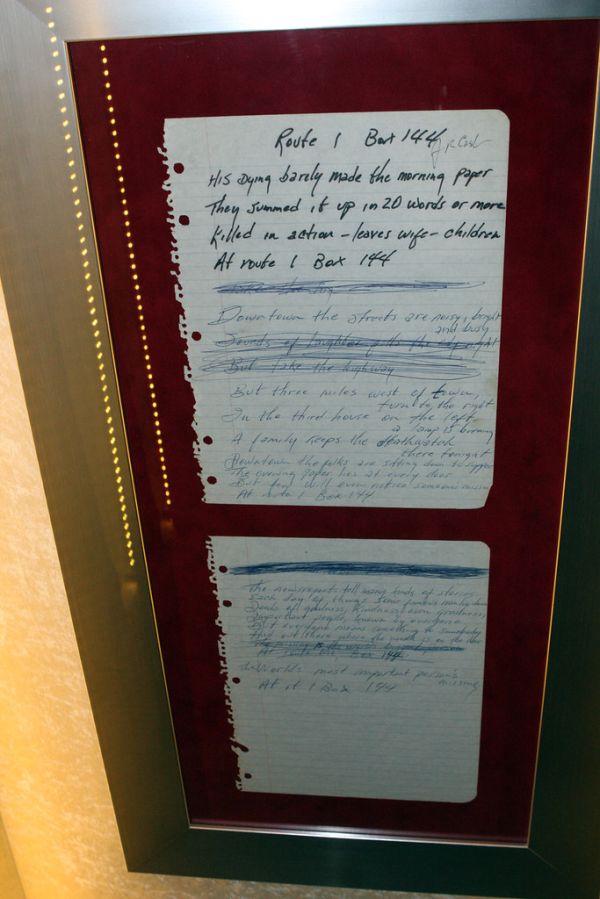 Route 1 Box 144
J R Cash
His Dying barely made the morning paper
They summed it up in 20 words or more
Killed in action - leaves wife - children
At route 1 Box 144
Downtown the streets are noisy, bright
and busy
Sounds of laughter fills the
But take the highway
But three miles west of town,
turn to the right
In the third house on the left
a lamp is burning
A family keeps the deathwatch
there tonight
Downtown the folks are sitting down to supper
The evening paper lies at every door
But few will even notice someone missing
At route 1 Box 144
The news reports tell many kinds of stories
Each day of things some famous man has done
Deeds of goodness, kindness, even greatness,
Important people, known by everyone
But everyone means something to somebody
And out there where the
At route one Box 144
the world's most important person's
missing
At rt 1 Box 144